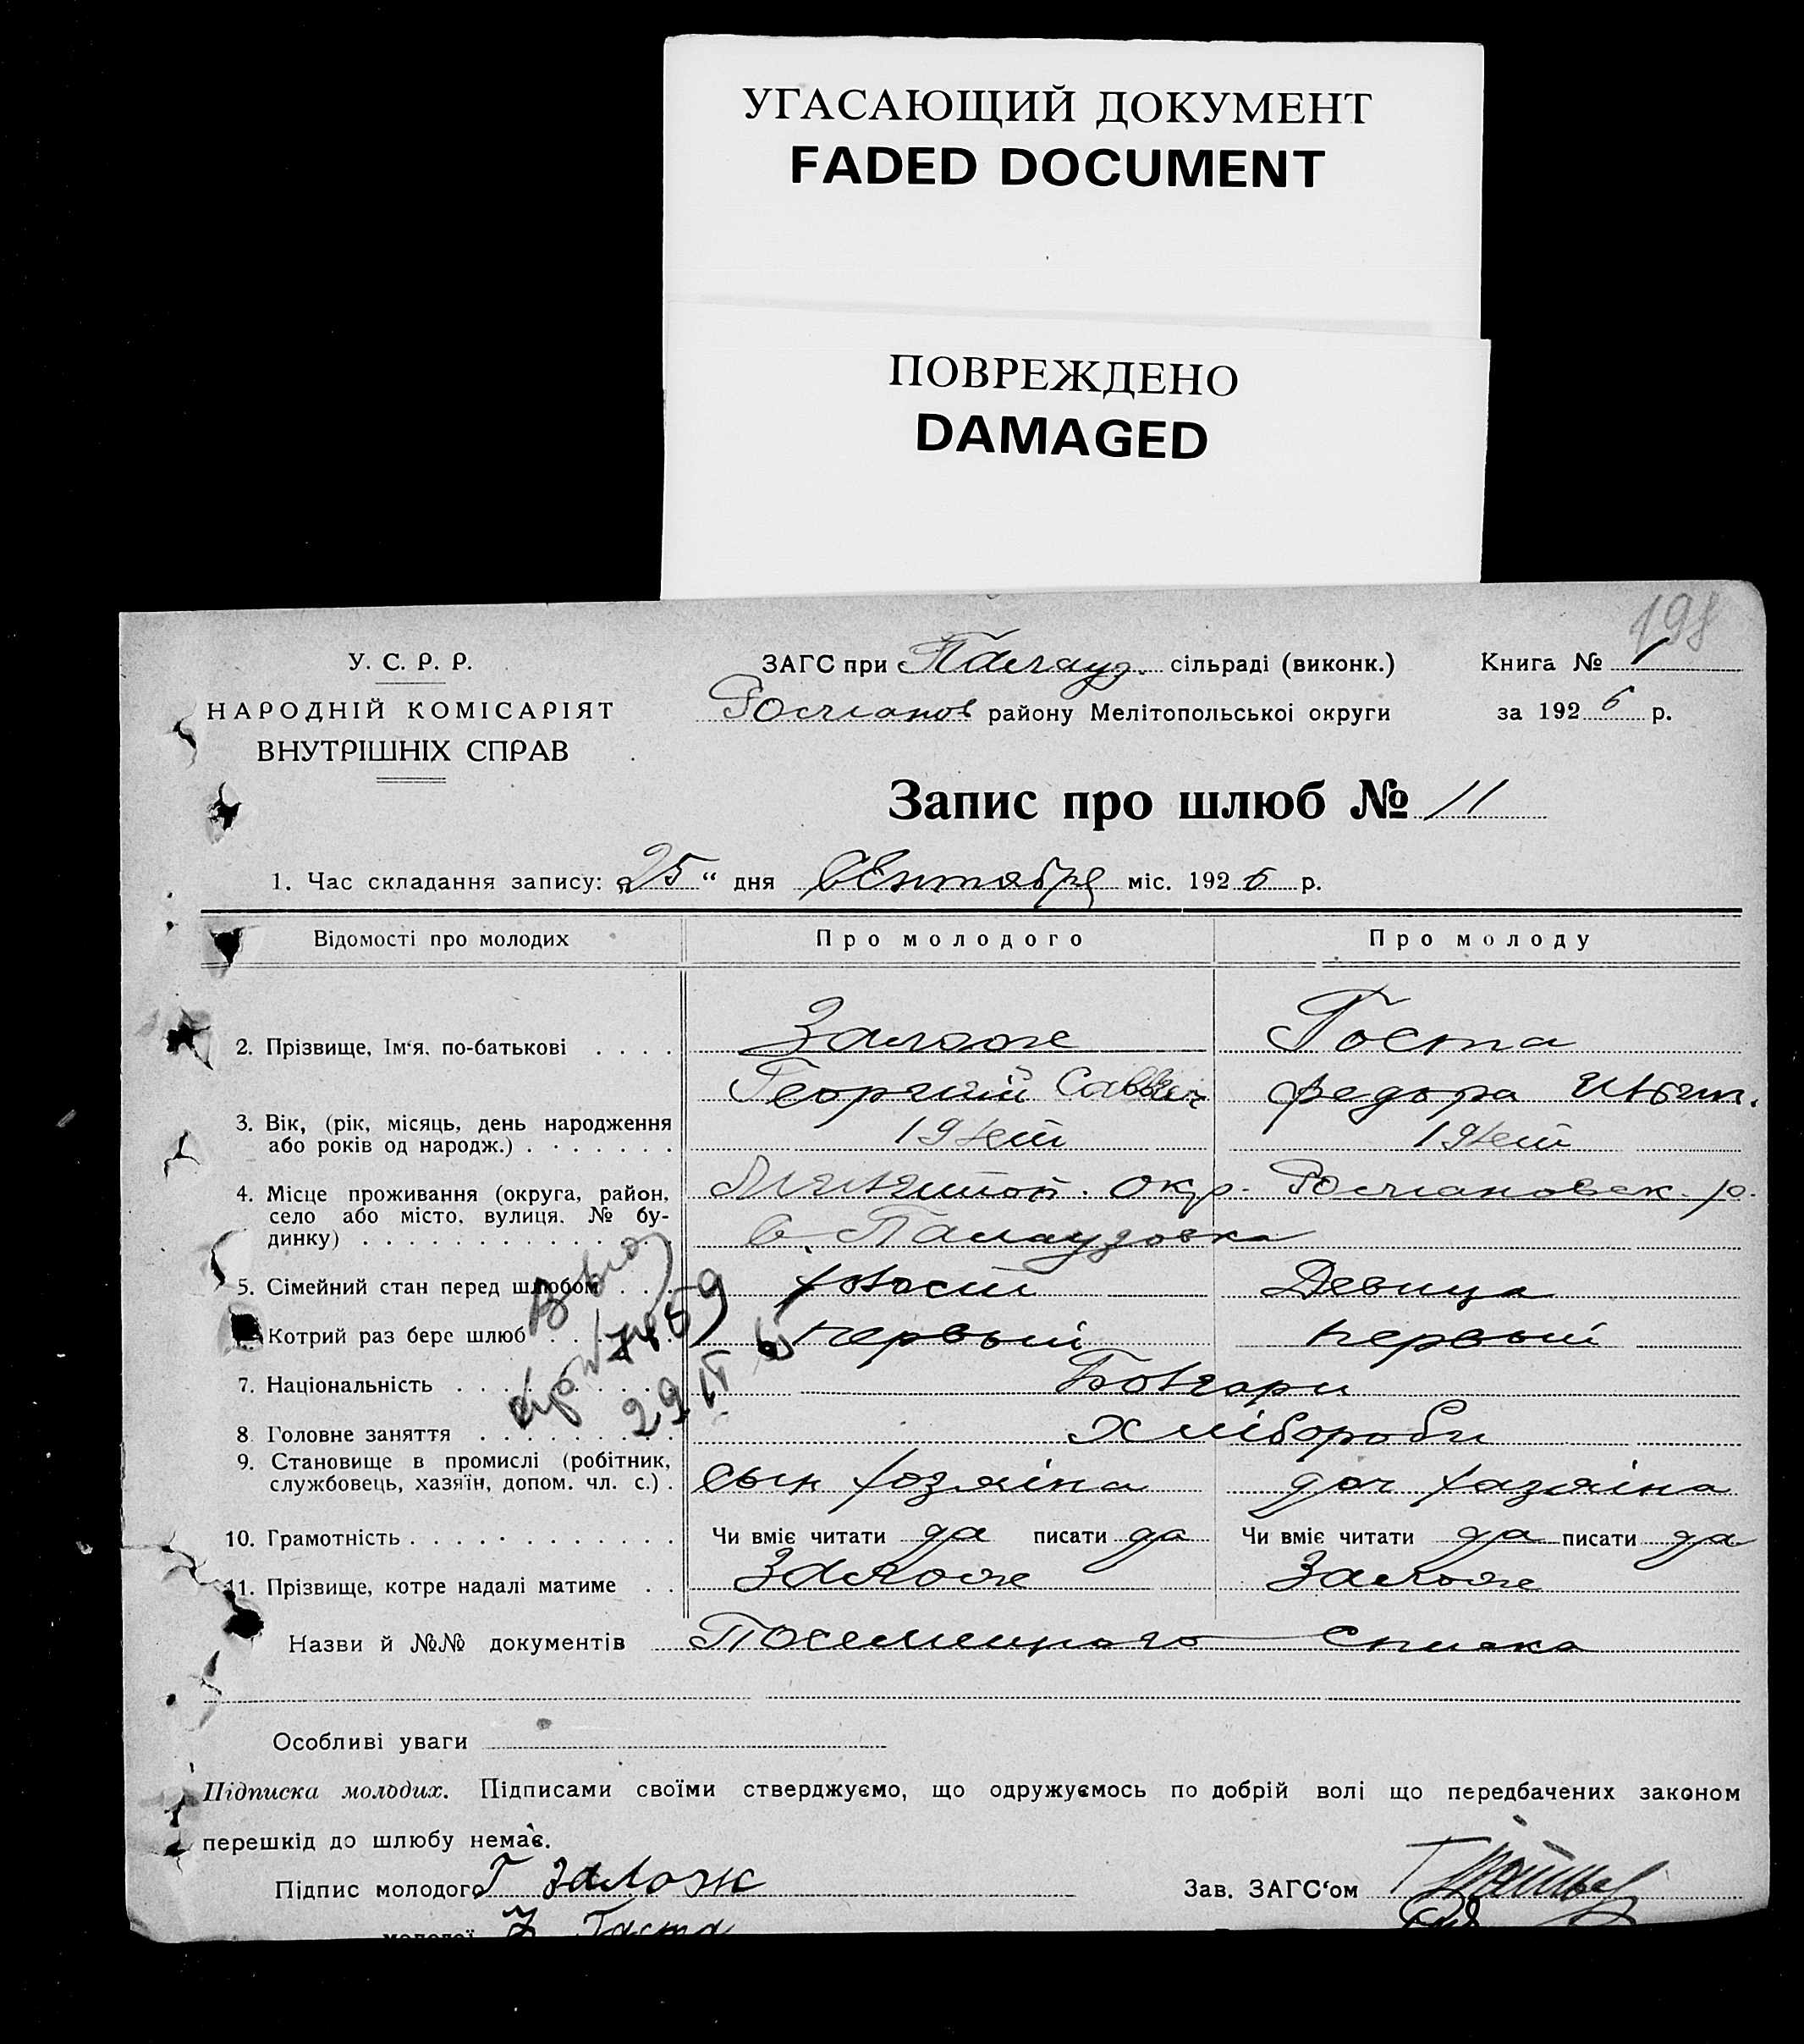 УГАСАЮЩИЙ ДОКУМЕНТ
FADED DOCUMENT
ПОВРЕЖДЕНО
DAMAGED
198
У. С. Р. Р.
НАРОДНІЙ КОМІСАРІЯТ
ВНУТРІШНІХ СПРАВ
ЗАГС при Палауз. сільраді (виконк.) Книга № 1
району Мелітопольської округи за 1926 р.
Запис про шлюб № 11
1. Час складання запису: „25“ дня Сентября міс. 1926 р.
Відомості про молодих Про молодого Про молоду
2. Прізвище, Ім'я, по-батькові . . . . Залож Госта
Георгий Саввич Федора
3. Вік, (рік, місяць, день народження
або років од народж.) . . . . . . . 19 лет 19 лет
4. Місце проживання (округа, район, окр.
село або місто, вулиця, № бу-
динку) . . . . . . . . . . . . . с. Палаузовка
5. Сімейний стан перед шлюбом . . . холост Девица
Котрий раз бере шлюб . . . . . . первый первый
7. Національність . . . . . . . . . Болгари
8. Головне заняття . . . . . . . . . Хлібороби
9. Становище в промислі (робітник,
службовець, хазяїн, допом. чл. с.) . сын хозяіна доч хазяіна
10. Грамотність . . . . . . . . . . . . Чи вміє читати да писати да Чи вміє читати да писати да
11. Прізвище, котре надалі матиме . . Залож Залож
Назви й №№ документів Посемейного списка
Особливі уваги
Підписка молодих. Підписами своїми стверджуємо, що одружуємось по добрій волі що передбачених законом
перешкід до шлюбу немає.
Підпис молодого Г Залож Зав. ЗАГС'ом
молодої Госта